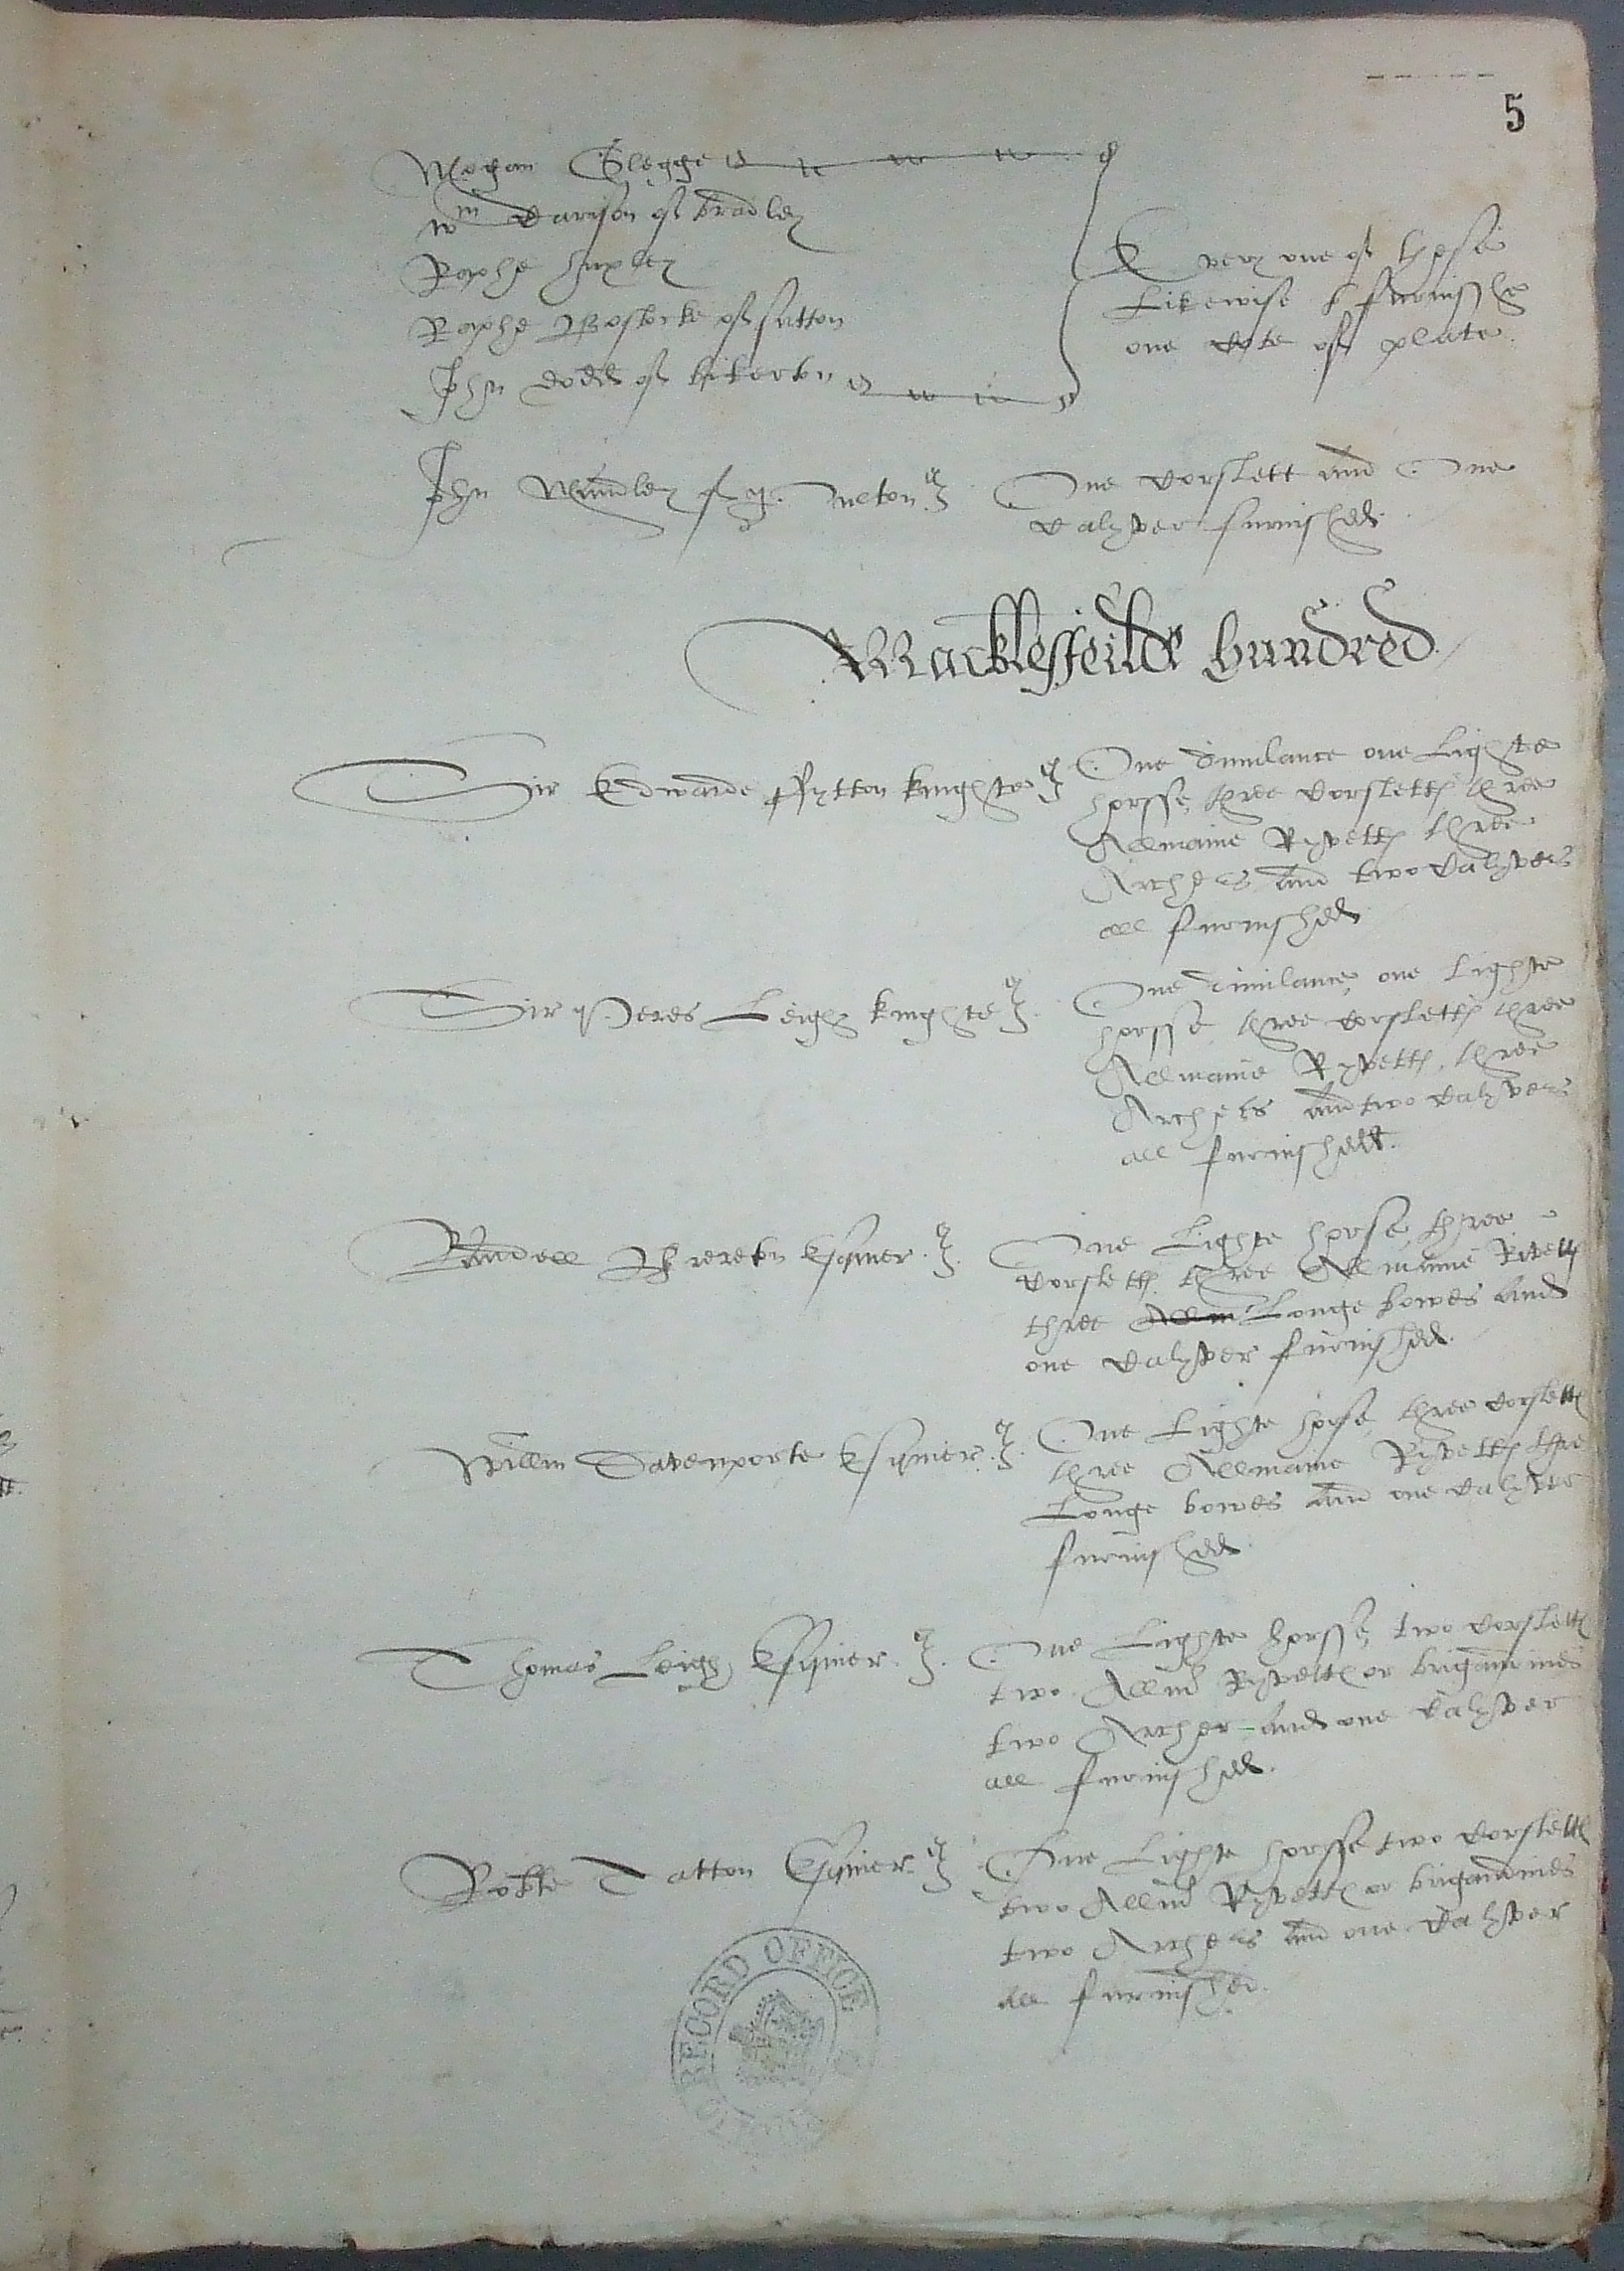 5
Mogan Glegge
Wm Caryson of Bradley
Raphe huxley
Raphe Bostocke of sutton
John dodd of bikerton
Every one of these
Likewise furnisshe
one cote of plate
John Manley of
One Corslett and One
Calyver furnished
Macklesfeilde hundred
Sir Edwarde ffytton knighte
One dimilance one Lighte
horsse, three Corslett three
Allmaine Ryvett three
Archers and two Calyvers
all furnished
Sir Peres Leigh knighte
One dimilance, one Lighte
horsse three Corslett three
Allmaine Ryvett, three
Archers and two Calyvers
all furnished.
Randell Esquier.
One Lighte horse, three
Corslett three Allmaine Rivett
three Allm Longe bowes and
one Calyver furnished.
Willm Davenporte Esquier.
One Lighte horse three Corslett
three Allmaine Ryvett thre
Longe bowes and one Calyver
furnished
Thomas Leigh Esquier.
One Lighte horsse, two Corslett
two Allm Ryvett or brigandines
two Archer and one Calyver
all furnished.
Robte Tatton Esquier
One Lighte horsse two Corslett
two Allm Ryvett or brigandines
two Archers and one Calyver
all furnished.
RECORD OFFICE